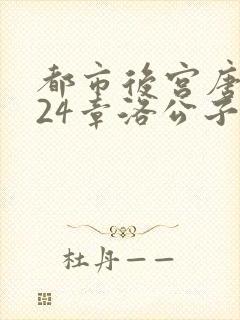 都市後宮唐
24章洛公子
杜丹——